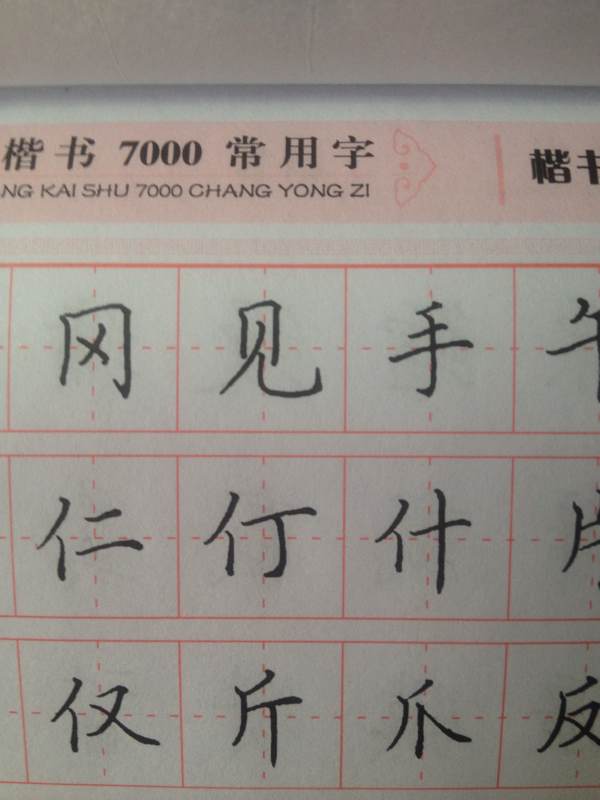 楷书 7000 常用字
NG KAI SHU 7000 CHANG YONG ZI
楷书
冈 见 手 午
仁 仃 什
仅 斤 爪 反